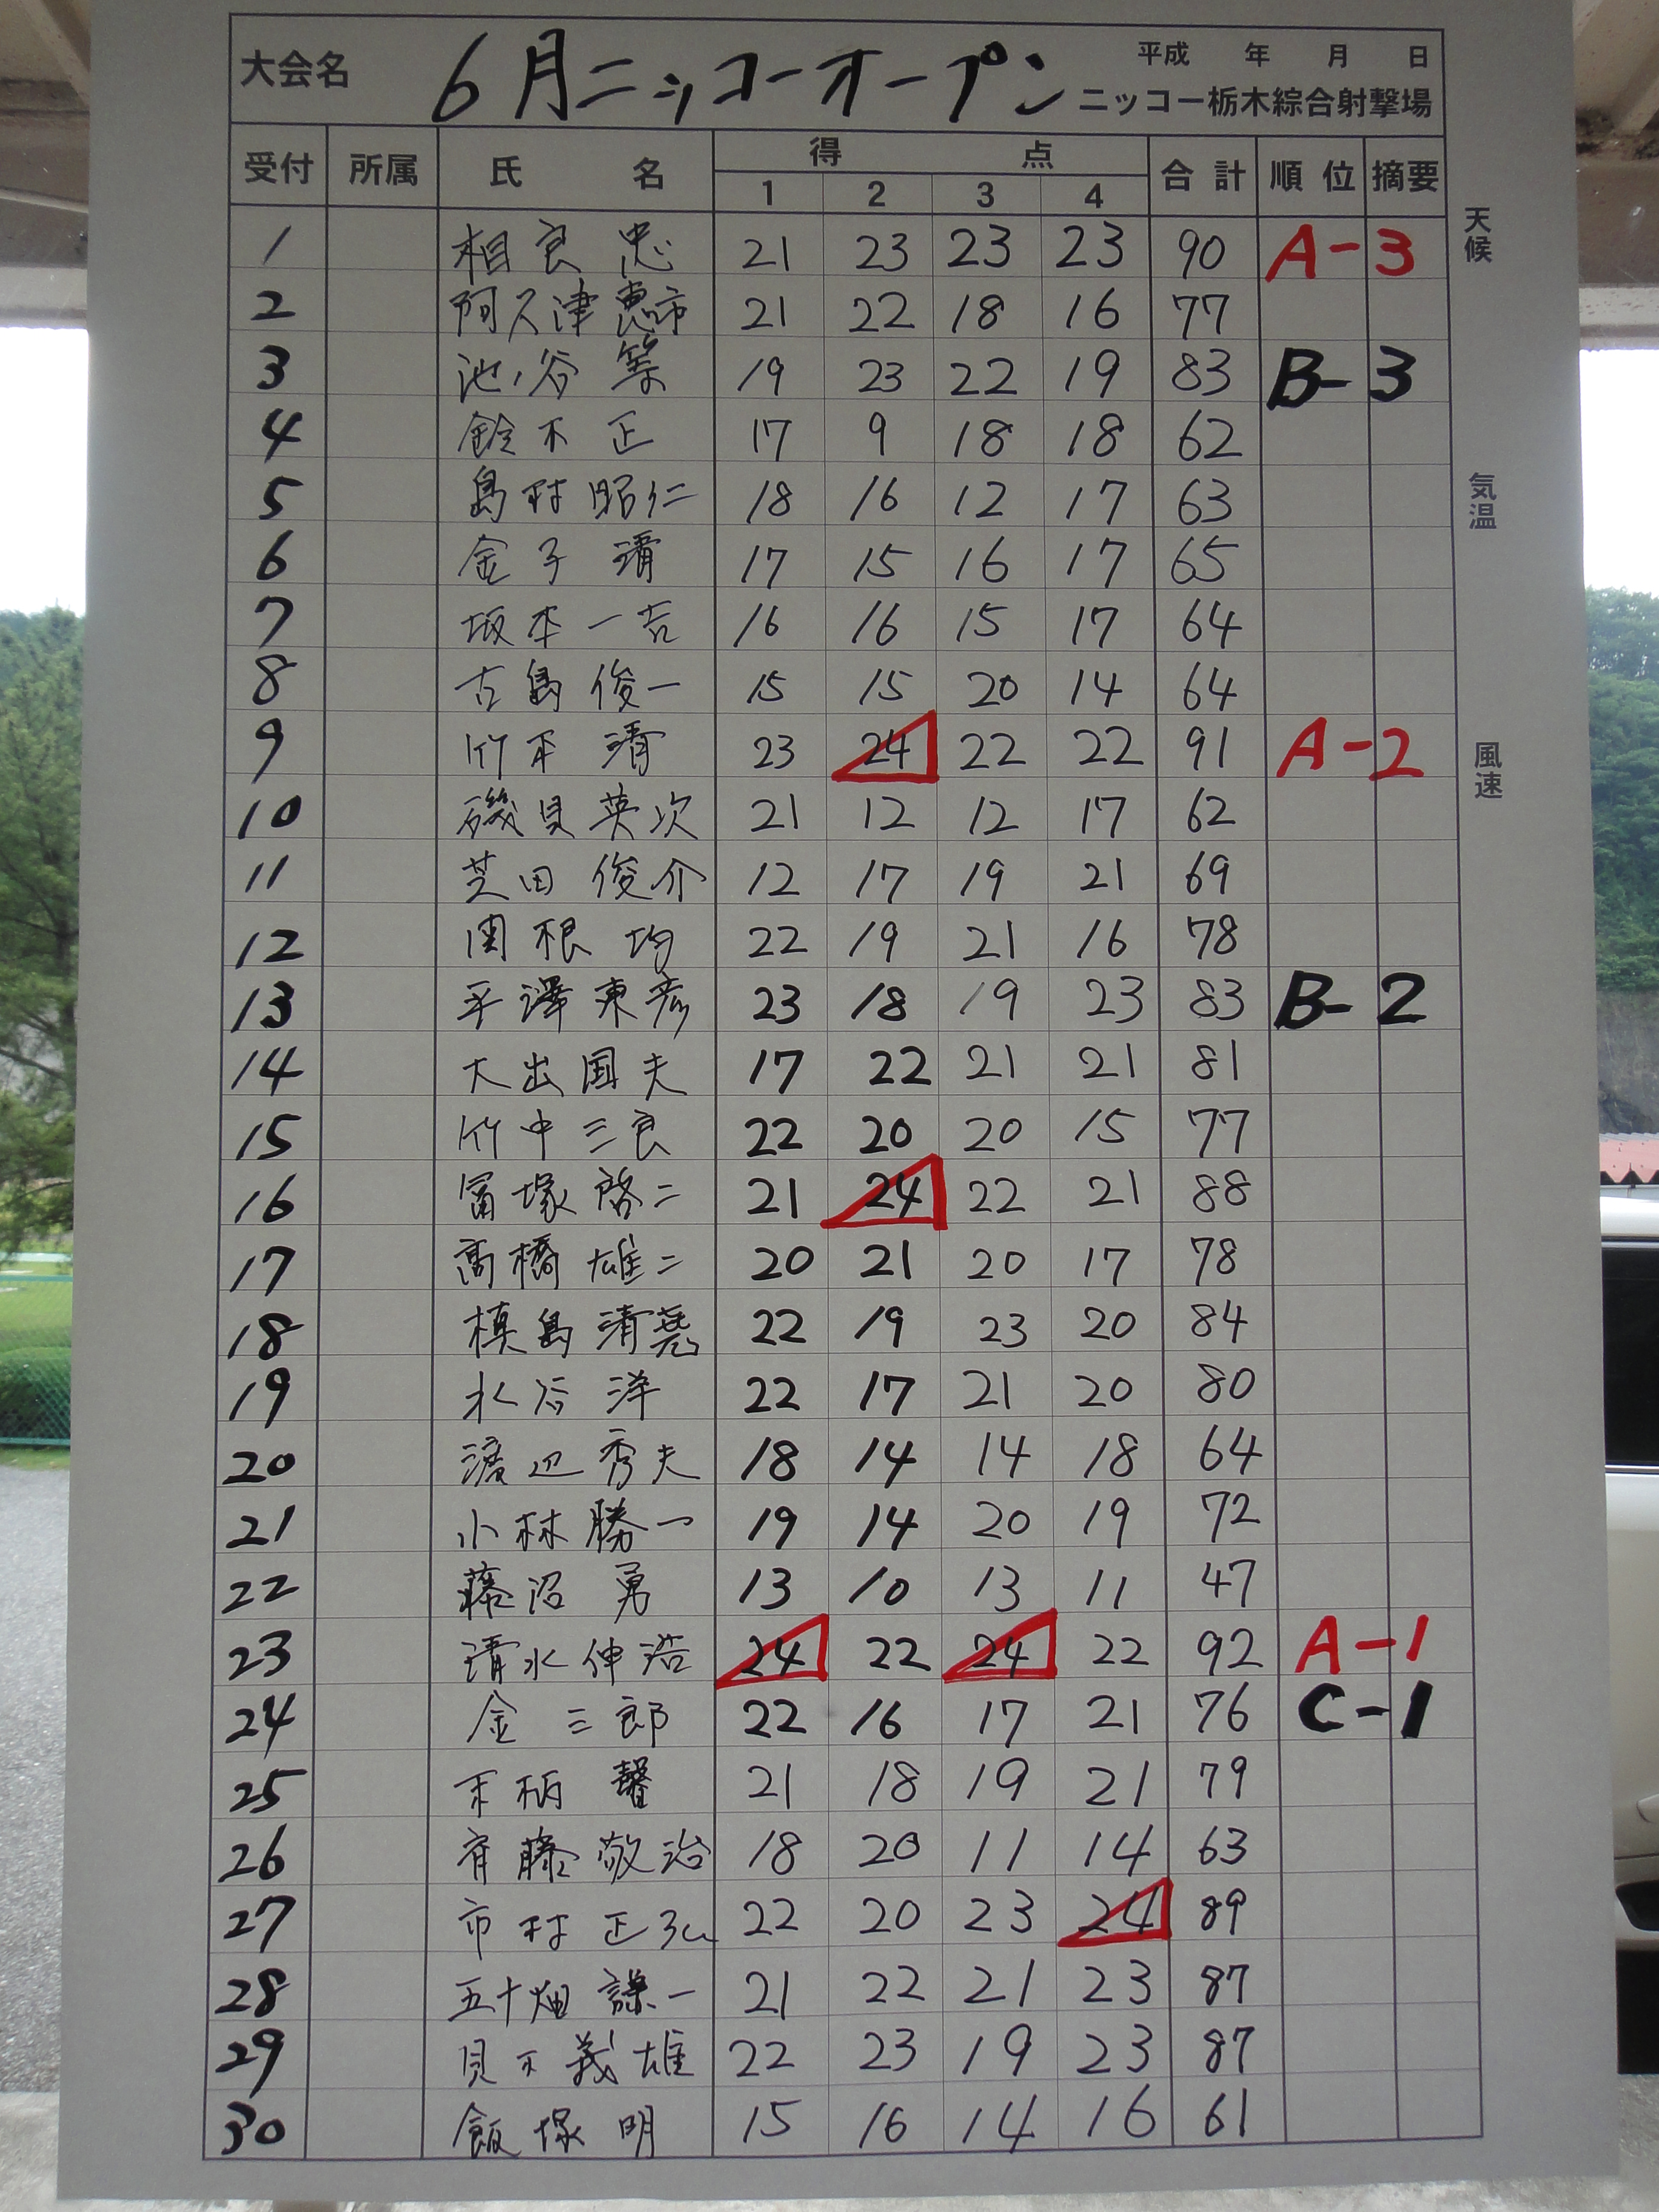 大会名 6月ニッコーオープン 平成 年 月 日
ニッコー栃木綜合射撃場
受付 所属 氏 名 得 点 合計 順位 摘要
1 2 3 4
1 相良 忠 21 23 23 23 90 A-3
2 阿久津恵市 21 22 18 16 77
3 池ノ谷 築 19 23 22 19 83 B-3
4 鈴木 正 17 9 18 18 62
5 島村昭仁 18 16 12 17 63
6 金子 靖 17 15 16 17 65
7 坂本一吉 16 16 15 17 64
8 古島俊一 15 15 20 14 64
9 竹平 清 23 24 22 22 91 A-2
10 磯貝英次 21 12 12 17 62
11 芝田俊介 12 17 19 21 69
12 関根 均 22 19 21 16 78
13 平澤東彦 23 18 19 23 83 B-2
14 大出国夫 17 22 21 21 81
15 竹中三良 22 20 20 15 77
16 冨塚啓二 21 24 22 21 88
17 高橋雄二 20 21 20 17 78
18 槙島清堯 22 19 23 20 84
19 水谷 洋 22 17 21 20 80
20 渡辺秀夫 18 14 14 18 64
21 小林勝一 19 14 20 19 72
22 藤沼 勇 13 10 13 11 47
23 清水伸浩 24 22 24 22 92 A-1
24 金 三郎 22 16 17 21 76 C-1
25 末柄 馨 21 18 19 21 79
26 斉藤敬治 18 20 11 14 63
27 市村正弘 22 20 23 24 89
28 五十畑謙一 21 22 21 23 87
29 貝不義雄 22 23 19 23 87
30 飯塚 明 15 16 14 16 61
天候
気温
風速